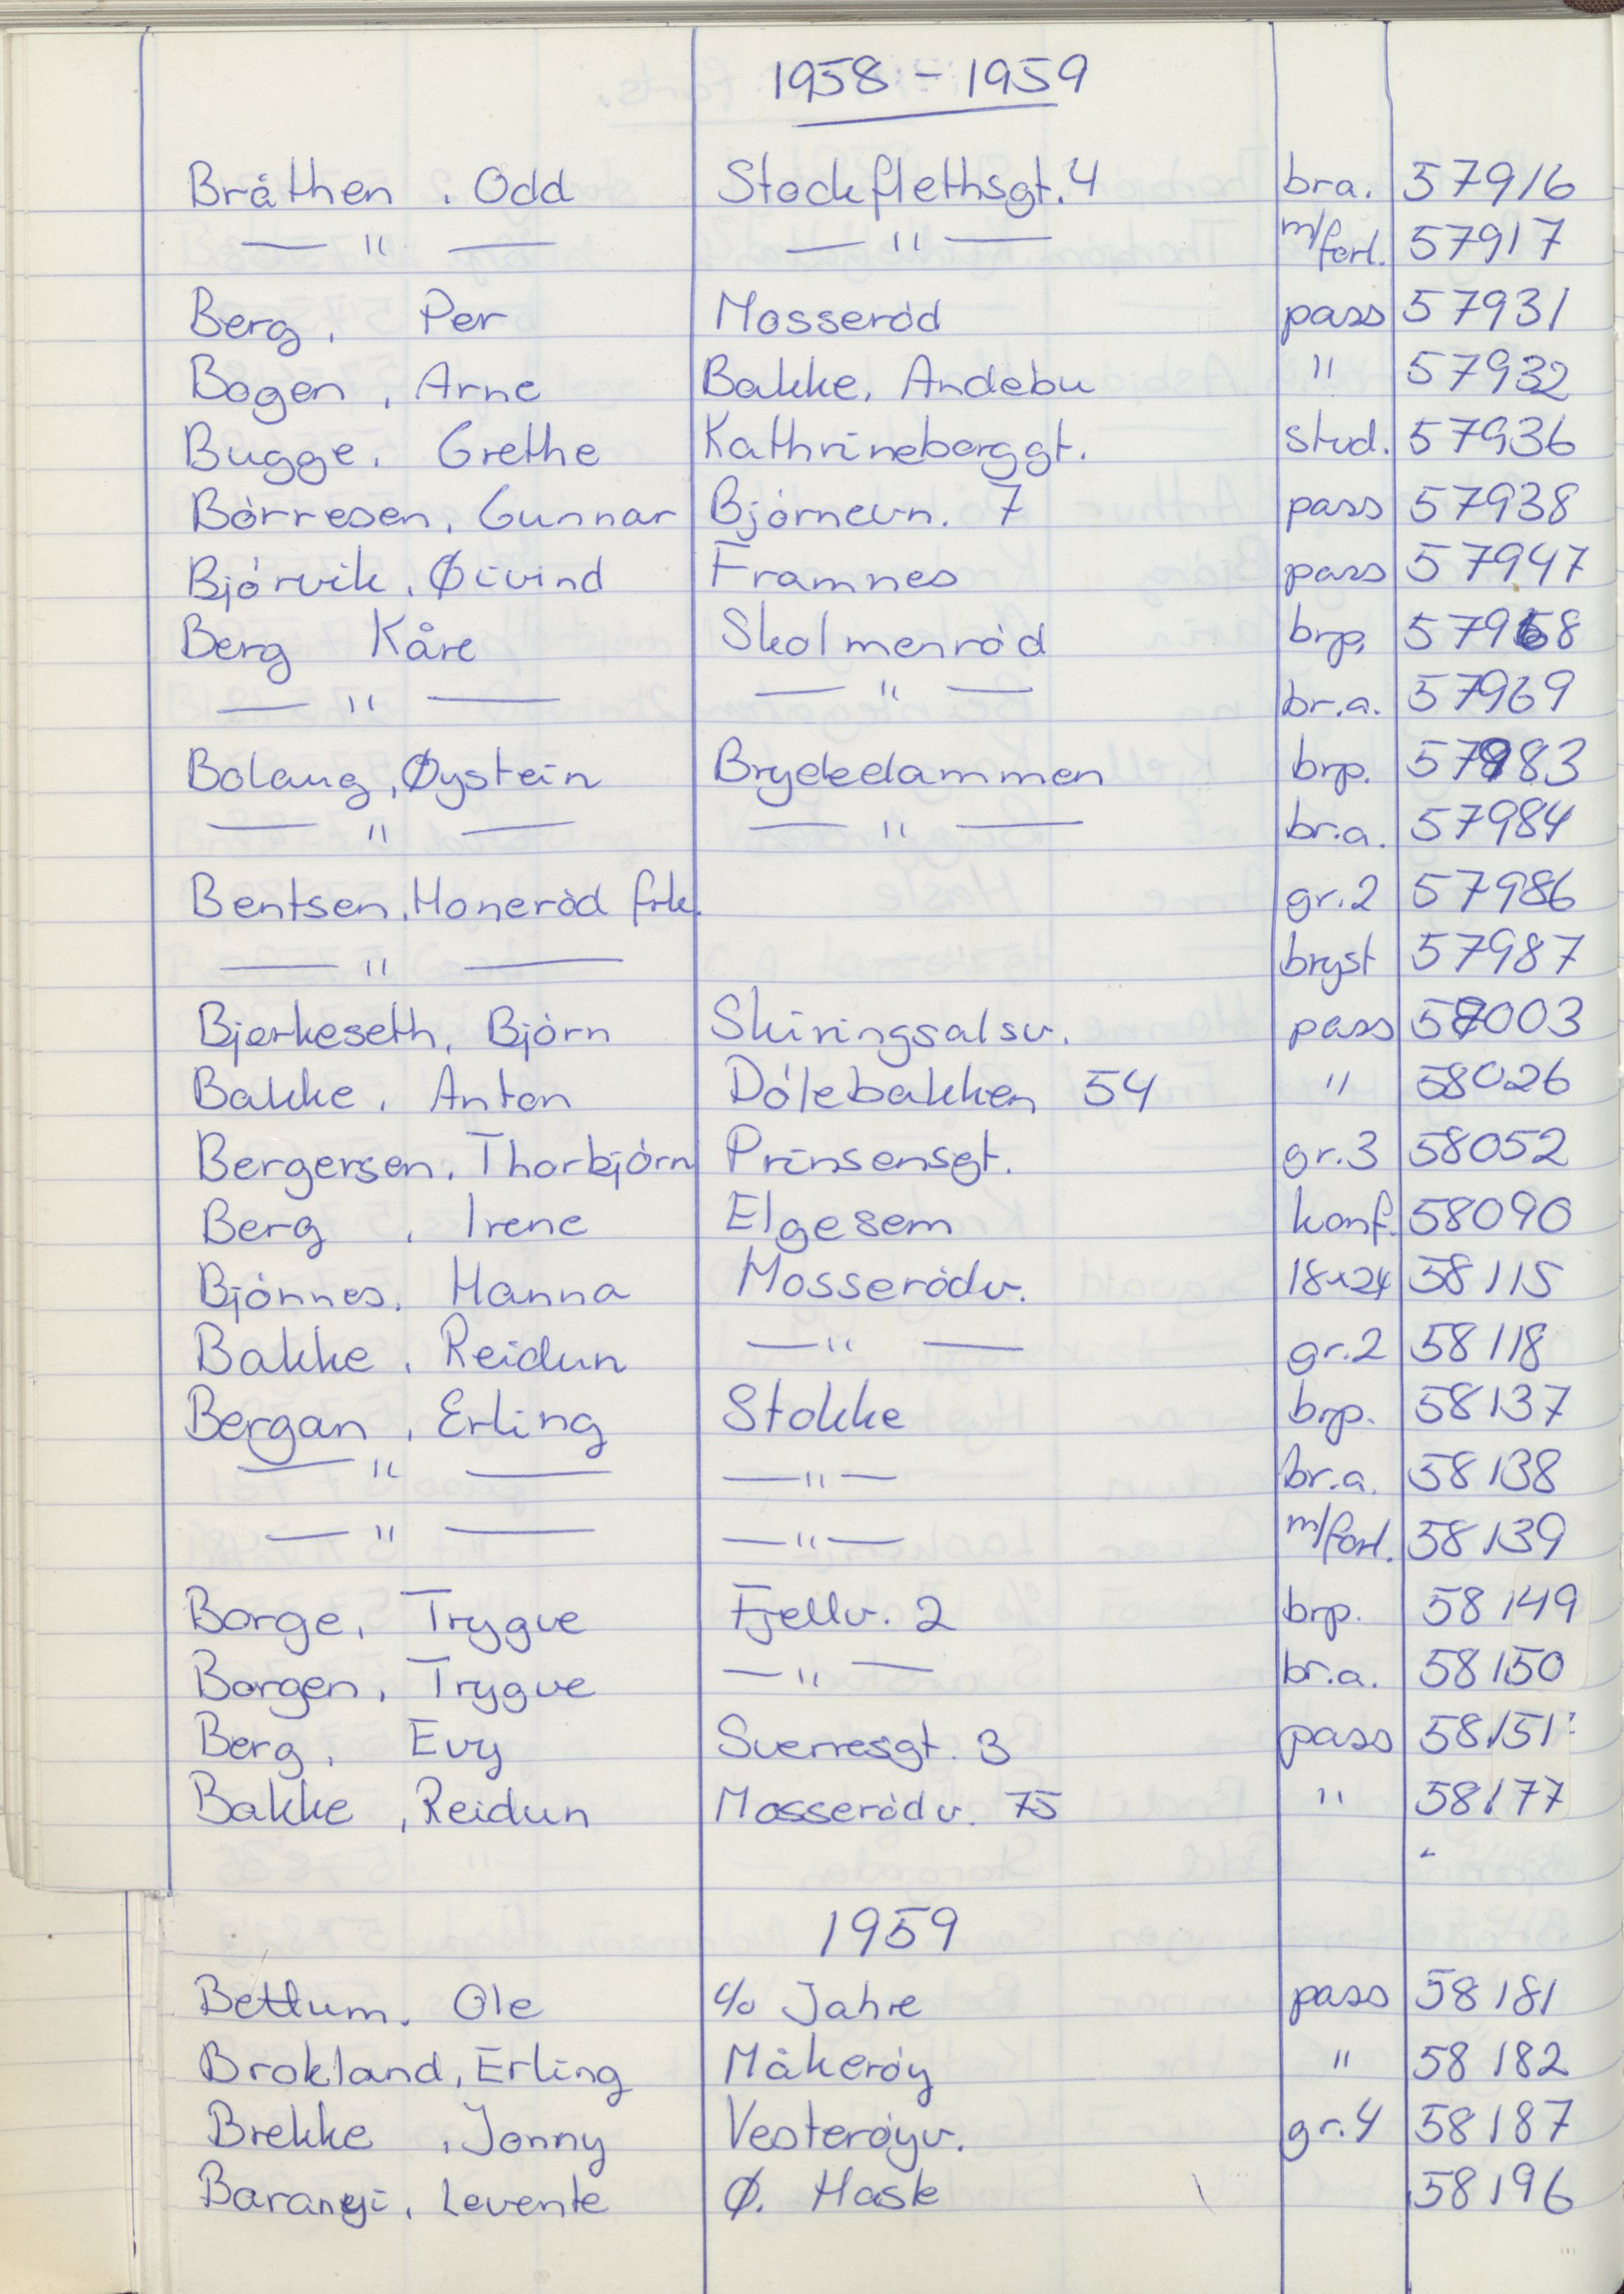 1958 - 1959
Bråthen, Odd Stockflethsgt. 4 bra. 57916
— " — — " — m/forl. 57917
Berg, Per Mosseród pass 57931
Bogen, Arne Bakke, Andebu " 57932
Bugge, Grethe Kathrineborggt. stud. 57936
Bórresen, Gunnar Bjórnevn. 7 pass 57938
Bjórvik, Øivind Framnes pass 57947
Berg Kåre Skolmenród brp. 57968
— " — — " — br.a. 57969
Bolaug, Øystein Brydedammen brp. 57983
— " — — " — br.a. 57984
Bentsen, Honeród frk. gr.2 57986
— " — bryst 57987
Bjerkeseth, Bjórn Skiringsalsv. pass 58003
Bakke, Anton Dólebakken 54 " 58026
Bergersen, Thorbjórn Prinsensgt. gr.3 58052
Berg, Irene Elgesem konf. 58090
Bjónnes, Hanna Mosseródv. 18x24 58115
Bakke, Reidun — " — gr.2 58118
Bergan, Erling Stokke brp. 58137
— " — — " — br.a. 58138
— " — — " — m/forl. 58139
Borge, Trygve Fjellv. 2 brp. 58149
Borgen, Trygve — " — br.a. 58150
Berg, Evy Sverresgt. 3 pass 58151
Bakke, Reidun Mosseródv. 75 " 58177
1959
Bettum, Ole c/o Jahre pass 58181
Brokland, Erling Måkeróy " 58182
Brekke, Jonny Vesteróyv. gr.4 58187
Baranyi, Levente Ø. Hasle 58196